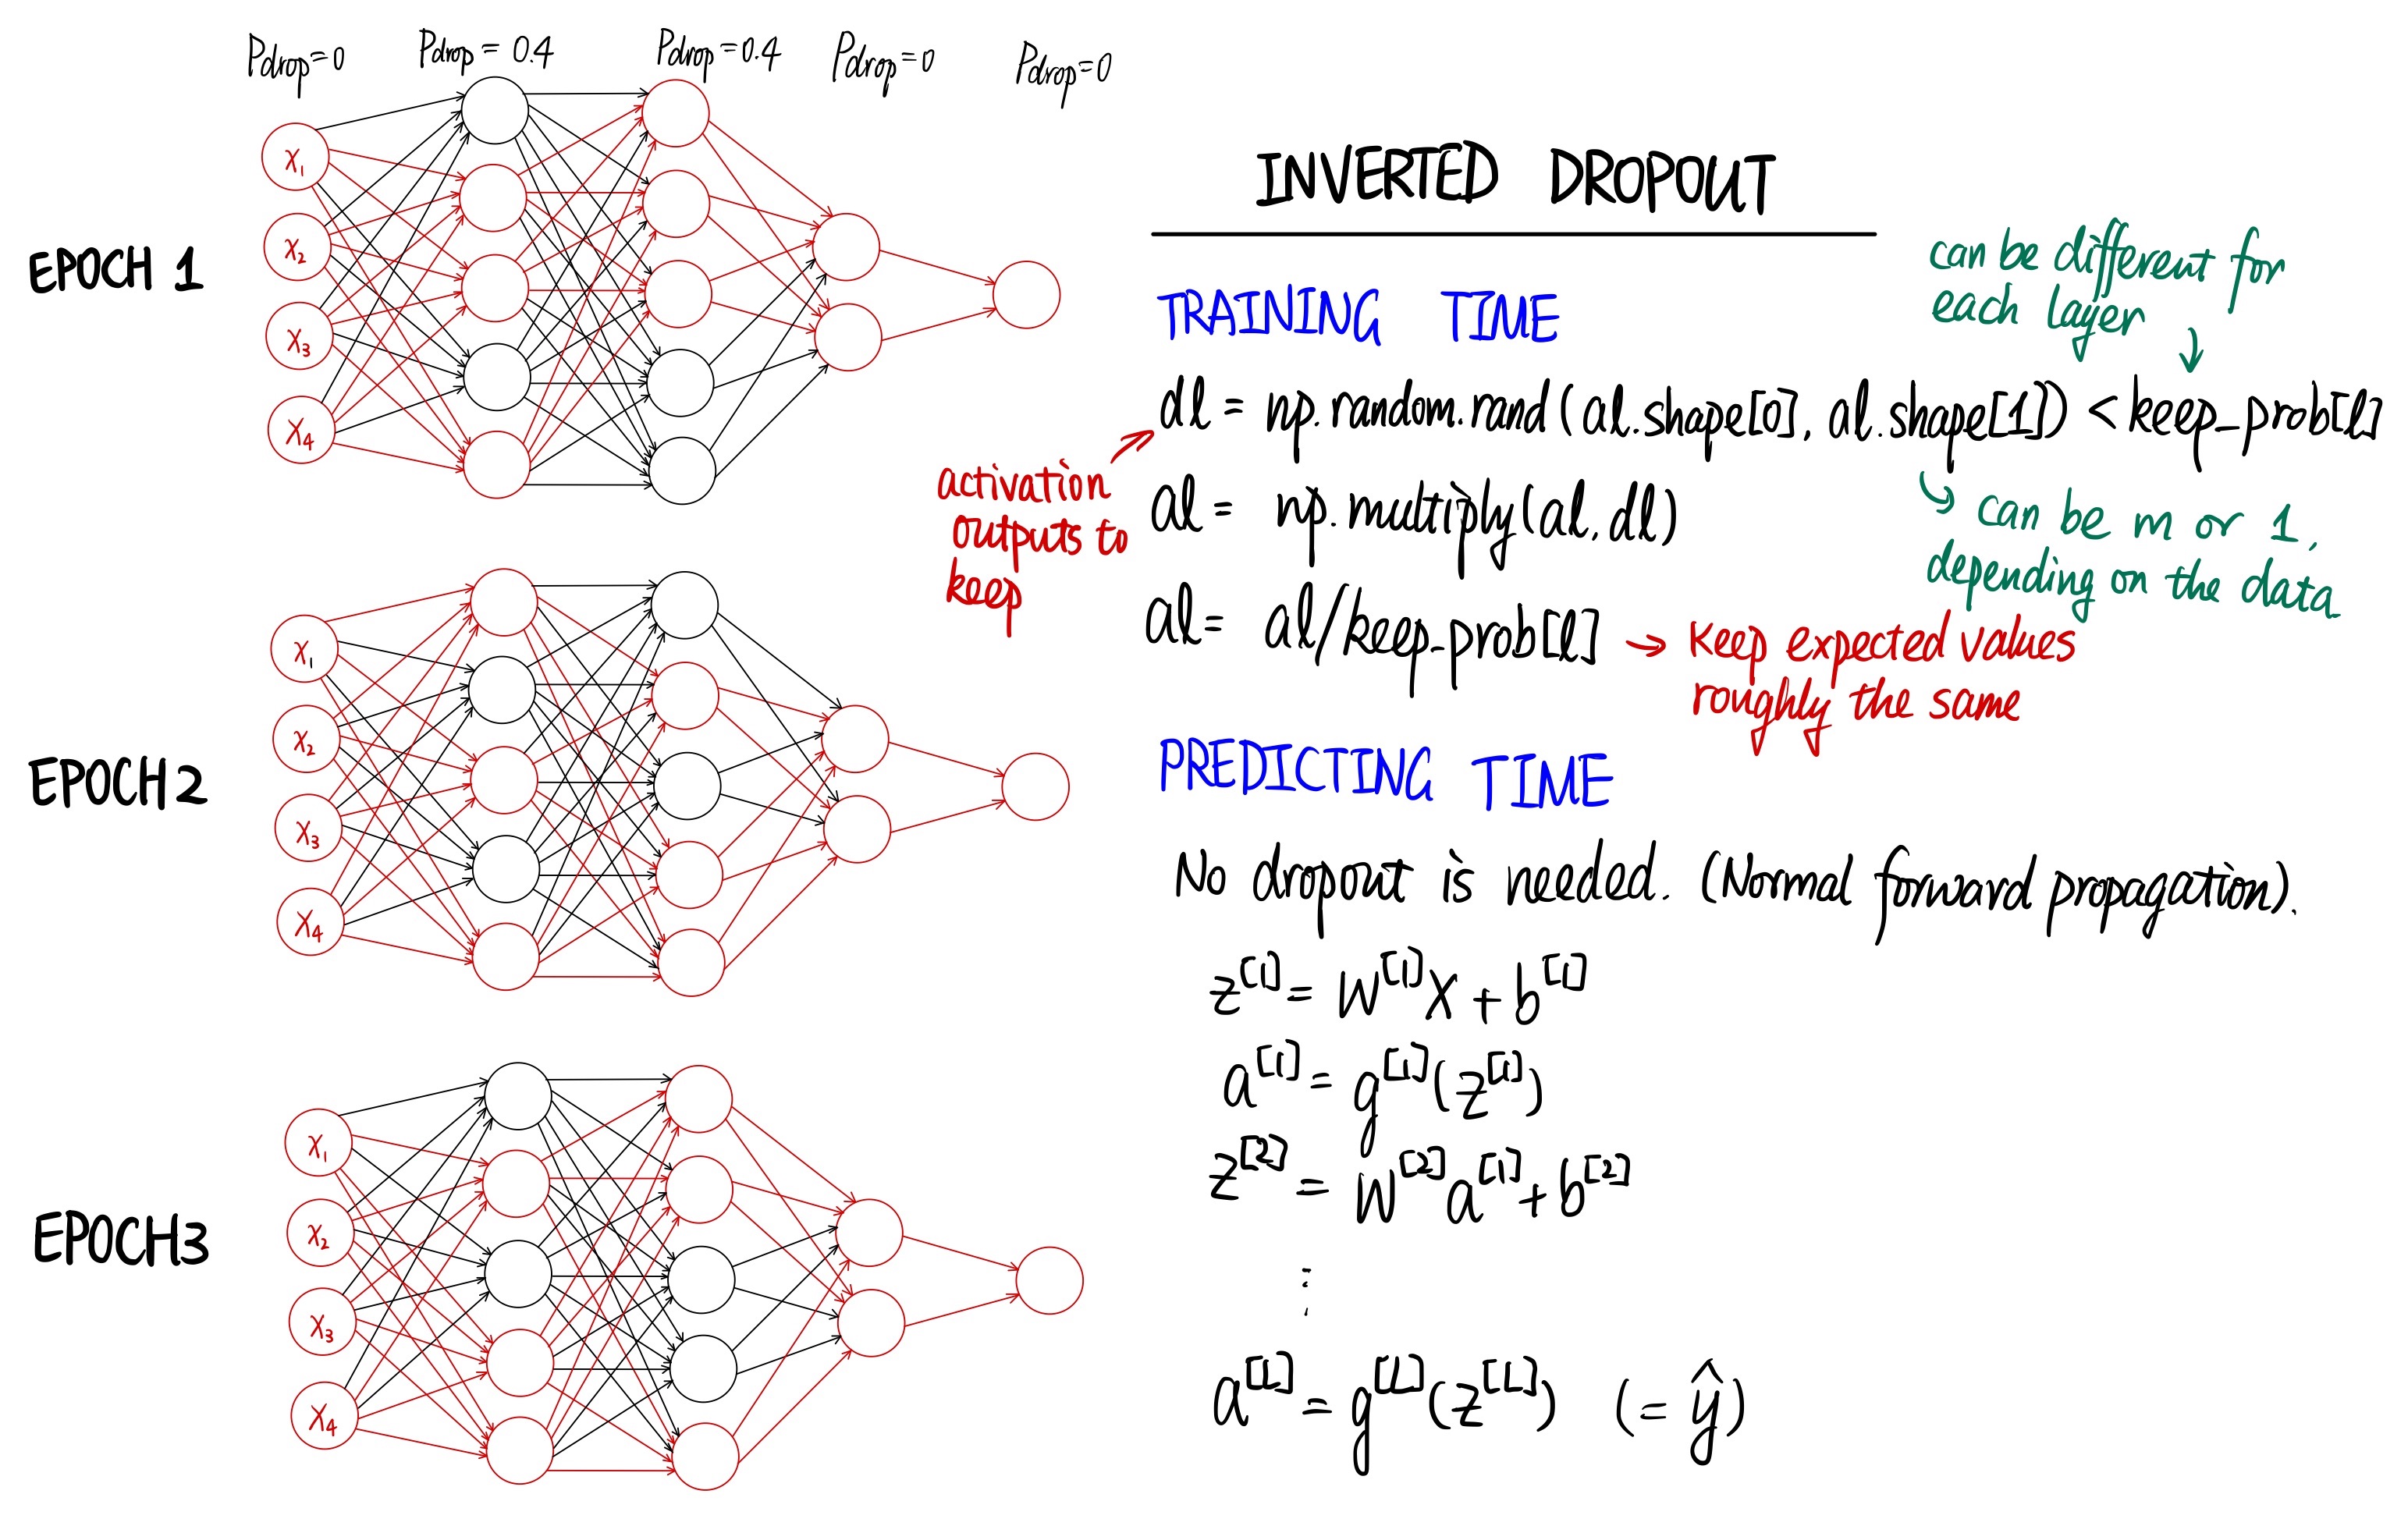 Pdrop=0 Pdrop = 0.4 Pdrop=0.4 Pdrop=0 Pdrop=0
EPOCH 1
x₁
x₂
x₃
x₄
EPOCH2
x₁
x₂
x₃
x₄
EPOCH3
x₁
x₂
x₃
x₄
INVERTED DROPOUT
TRAINING TIME
can be different for
each layer
dl = np.random.rand(al.shape[0], al.shape[1]) < keep_prob[l]
activation
outputs to
keep
can be m or 1,
depending on the data
al = np.multiply(al, dl)
al = al/keep_prob[l]
Keep expected values
roughly the same
PREDICTING TIME
No dropout is needed. (Normal forward propagation).
z^[1] = W^[1]X + b^[1]
a^[1] = g^[1](z^[1])
z^[2] = W^[2]a^[1] + b^[2]
⋮
a^[L] = g^[L](z^[L]) (= ŷ)